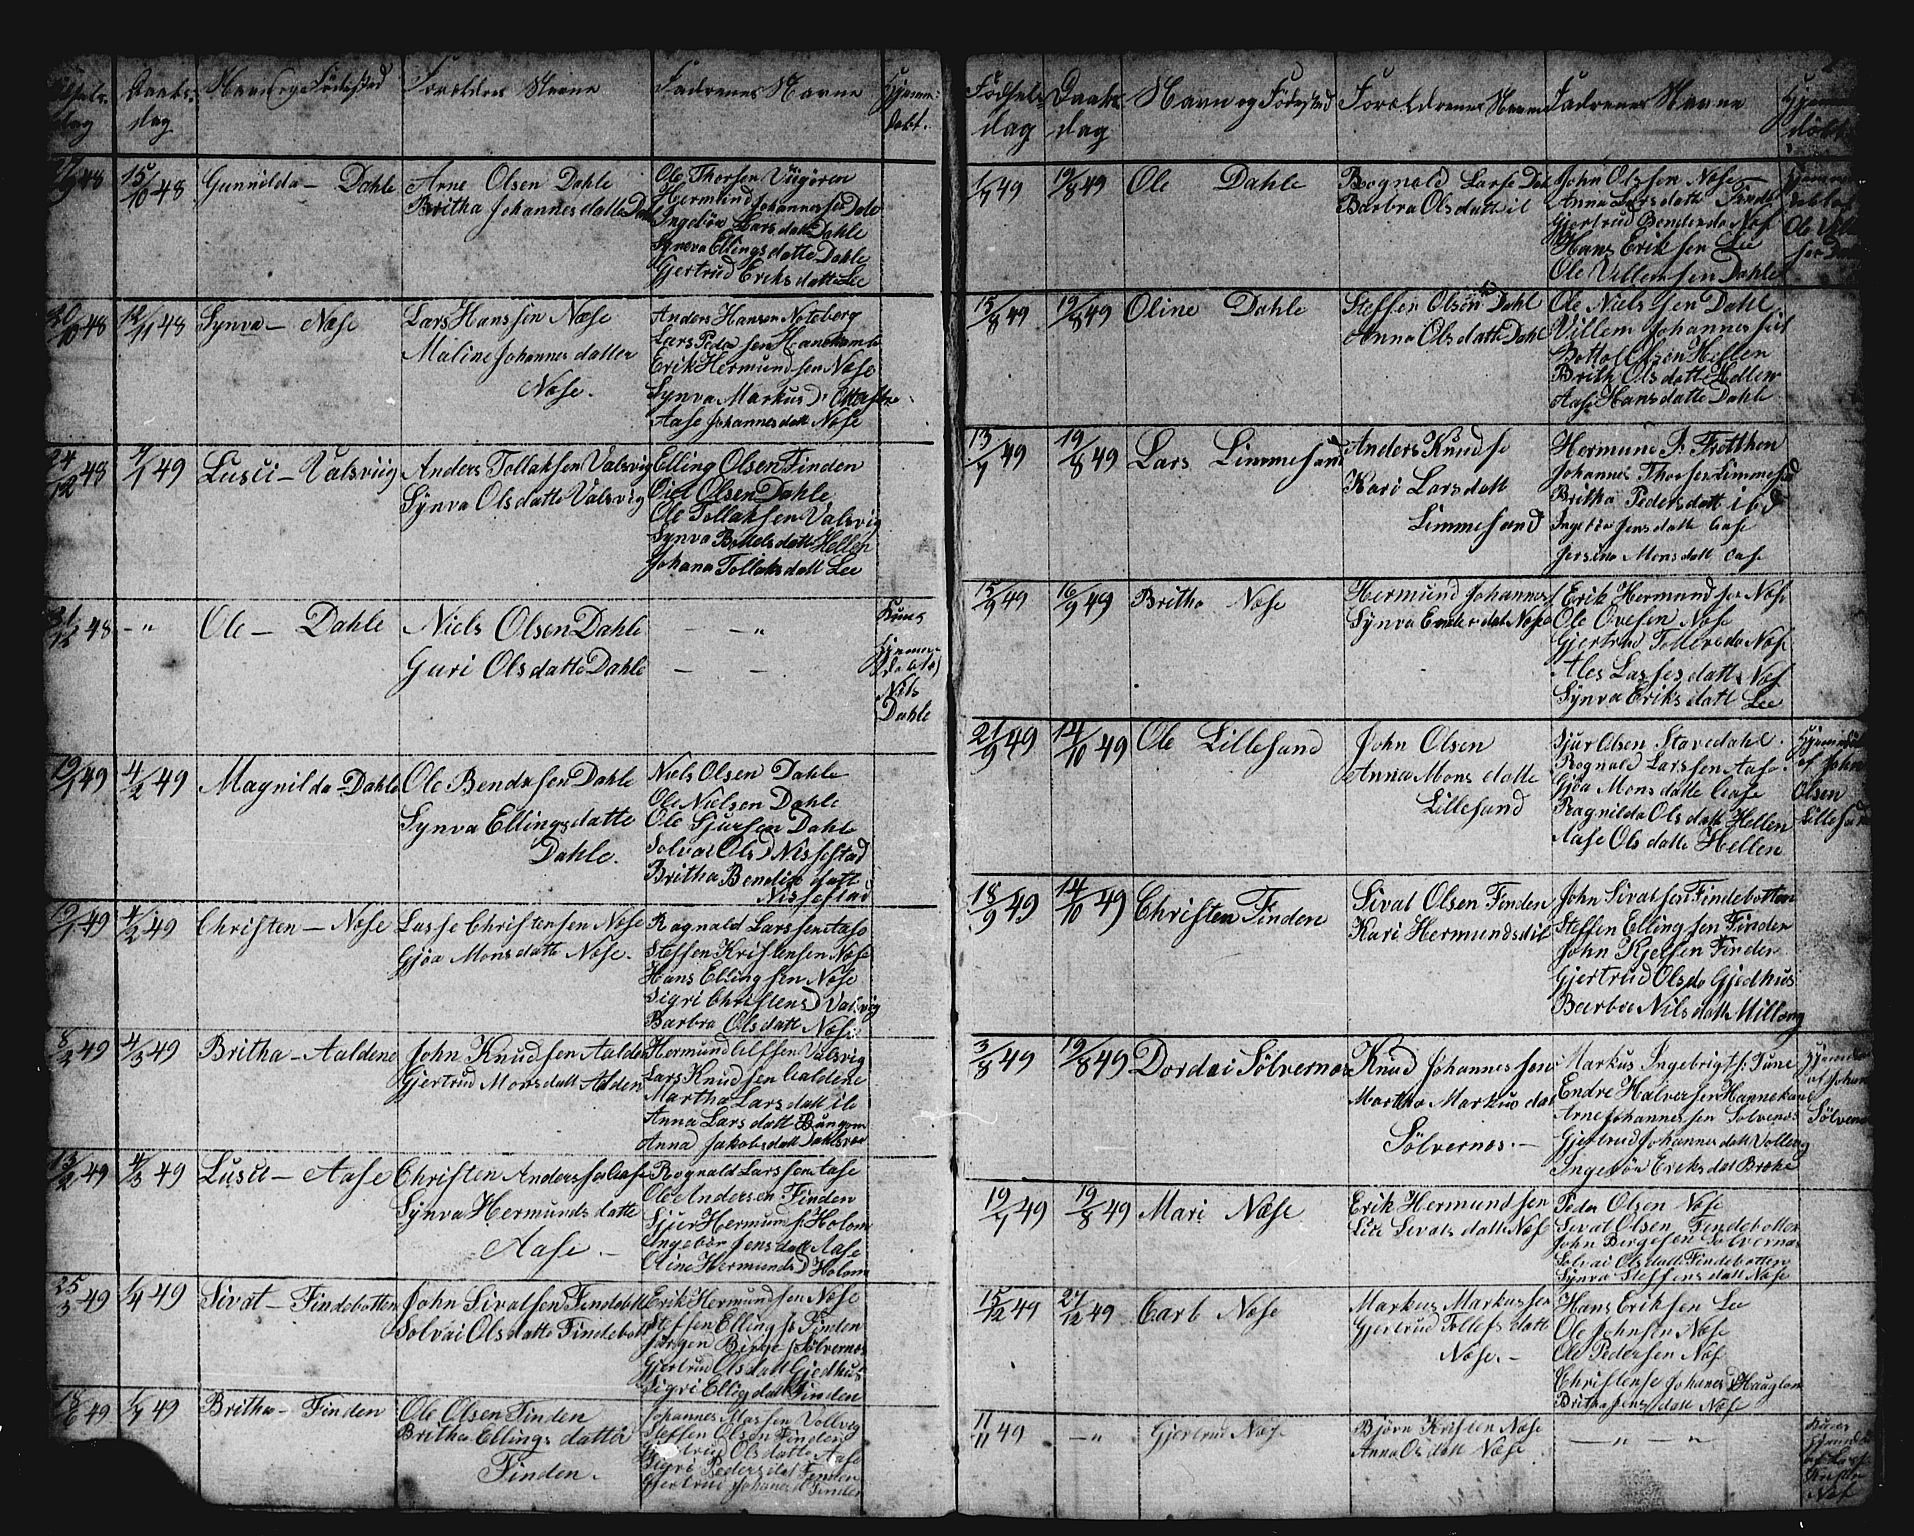 dag
Daabs-
dag
Navn og Fødested
Forældres Navne
Faddrenes Navne
Hjemme-
døbt.
27/9 48
15/10 48
Gunnilda – Dahle
Arne Olsen Dahle
Britha Johannesdatte Dale
Ole Thorsen
Hermund Johannessen Dale
Ingebör Larsdatte Dahle
Synva Ellingsdatte Dahle
Gjertrud Eriksdatte Lee
20/10 48
12/11 48
Synva – Næse
Lars Hanssen Næse
Maline Johannesdatter
Næse.
Anders Hansen Noteberg
Lars Peder sen Hanekamb
Erik Hermundsen Næse
Synva Markusd.
Aase Johannesdatt Næse
24/12 48
7/1 49
Lusci – Valsviig
Anders Tollaksen Valsvig
Synva Olsdatte Valsvig
Elling Olsen Finden
Olsen Dahle
Ole Tollaksen Valsvig
Synva Hellen
Johana Tollaksdatt Lee
31/12 48
– "
Ole – Dahle
Niels Olsen Dahle
Guri Olsdatte Dahle
– – "
– –
Kuns
Hjemme
døbt af
Nils
Dahle
19/1 49
4/2 49
Magnilda – Dahle
Ole Bendiksen Dahle
Synva Ellingsdatte
Dahle.
Niels Olsen Dahle
Ole Nielsen Dahle
Ole Sjursen Dahle
Solvai Olsd Nissestad
Britha Bendix datt
Nissestad
19/1 49
4/2 49
Christen – Næse
Lasse Christensen Næse
Gjøa Monsdatte Næse.
Ragnald Larssen Aase
Steffen Kristensen Næse
Hans Ellingsen Næse
Sigri Christens D Valsvig
Barbra Olsdatt Næse
8/2 49
4/3 49
Britha – Aaldene
John Knudsen Aaldene
Gjertrud Monsdatt Aalden
Hermund Alfsen Valsvig
Lars Knudsen Aaldene
Martha Larsdatt ib
Anna Larsdatt
Anna Jakobsdatt
13/2 49
4/3 49
Lusci – Aase
Christen Anderssen Aase
Synva Hermundsdatte
Aase –
Rognald Larssen Aase
Ole Andersen Finden
Sjur Hermunds. Holom
Ingebör Jensdatt Aase
Oline Hermunds D Holom
25/3 49
1/4 49
Sivat – Findebotten
John Sivatsen Findebott
Solvai Olsdatte Findebott
Erik Hermundsen Næse
Steffen Ellings Finden
Jørgen Birge Sølvernes
Gjertrud Olsdatt Gjedhus
Sigri Ellingdatt Finden
18/6 49
1/7 49
Britha – Finden
Ole Olsen Finden
Britha Ellingsdatter
Finden.
Johannes Vollvig
Steffen Olsen Finden
Gjertrud Olsdatte Aase
Sigri Pedersdat Finden
Gjertrud Johanesd Finden
Fødsels-
dag
Daabs
dag
Navn og Fødested
Forældrenes Navne
Fadrenes Navne
Hjemme
døbt
1/7 49
19/8 49
Ole Dahle
Rognald Larse Dal
Barbra Olsdatt il
John Olssen Næse
Anna Larsdatt Finde
Gjertrud Bendixsda Næs
Hans Eriksen Lee
Ole Villemsen Dahle
15/8 49
19/8 49
Oline Dahle
Steffen Olsen Dahl
Anna Olsdatte Dahl
Ole Nielssen Dahl
Villem Johannessen
Bottol Olsen Hellen
Brith Olsdatte Hellen
Aase Hansdatte Dahle
13/7 49
19/8 49
Lars Limmesand
Anders Knudse
Kari Larsdatt
Limmesand
Hermund
Johannes Thorsen Limmesand
Britha Pedersdatt ibd
Ingebör Jensdatt Aase
Monsdatt Aase
15/9 49
16/9 49
Britha Næse
Hermund Johannes
Synva Næse
Erik Hermundsen Næse
Ole Ovesen Næse
Gjertrud Tollevsda Næse
Ales Lassesdatte Næs
Synva Eriksdatt Lee
21/9 49
14/10 49
Ole Lillesand
John Olsen
Anna Monsdatte
Lillesand
Sjur Olsen Stavedahl.
Rognald Larssen Aase
Gjøa Monsdatte Aase
Ragnilda Olsdatt Hellen
Aase Olsdatte Hellen
af John
Olsen
Lillesand
18/9 49
14/10 49
Christen Finden
Sivat Olsen Finden
Kari Hermundsdil
John Sivatsen Findebotten
Steffen Ellingsen Finden
John Kjelsen Finden
Gjertrud Olsda Gjedhus
Barbra Nilsdatt
3/8 49
19/8 49
Dordai Sølvernes
Knud Johannessen
Martha Markus dat
Sølvernes. –
Markus Ingebrigts. Tune
Endre Halversen Hannekam
Arne Johannessen Solvernes
Gjertrud Johannesdatt Vollevig
Ingebör Eriksdat Brekke
Hjemdøbt
af Johan
Sølvernes
19/7 49
19/8 49
Mari Næse
Erik Hermundsen
Sivatsdatt Næs
Peder Olsen Næse
Sivat Olsen Findebotten
John Børgesen Solvernes
Solvai Olsdatt Findebotten
Synva Steffensdatt Næse
15/12 49
27/12 49
Carl Næse
Markus Markussen
Gjertrud Tollefsdatt
Næse. –
Hans Eriksen Lee
Ole Johnsen Næse
Ole Pedersen Næs
Christense Johanesd Hauglom
Britha Jensdatt Næse
11/11 49
– "
Gjertrud Næse
Bjørn Kristen Næse
Anna Olsdatt Næse
– " – "
Kuns
Hjemdøbt
af Lasse
Kristen
Næs